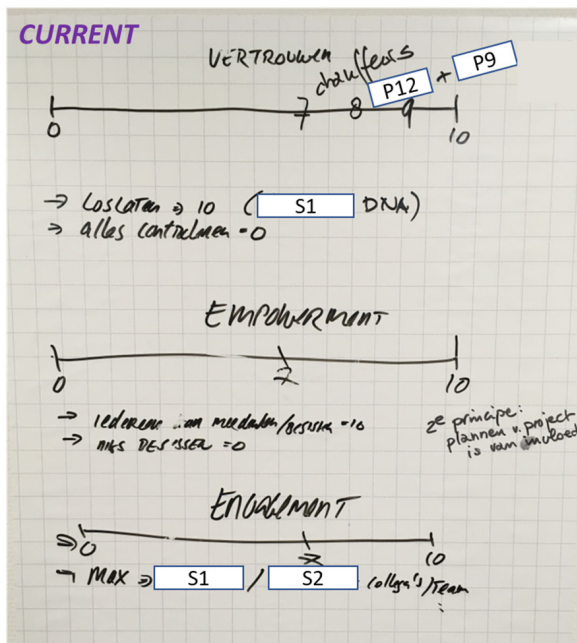 CURRENT
VERTROUWEN
chauffeurs
P12 + P9
0 7 8 9 10
→ Loslaten → 10 ( S1 DNA)
→ alles controleren = 0
EMPOWERMENT
0 7 10
→ Iedereen kan meedenken/beslissen = 10
→ niks beslissen = 0
2e principe:
plannen v. project
is van invloed
ENGAGEMENT
0 7 10
→ Max → S1 / S2 collega's/Team